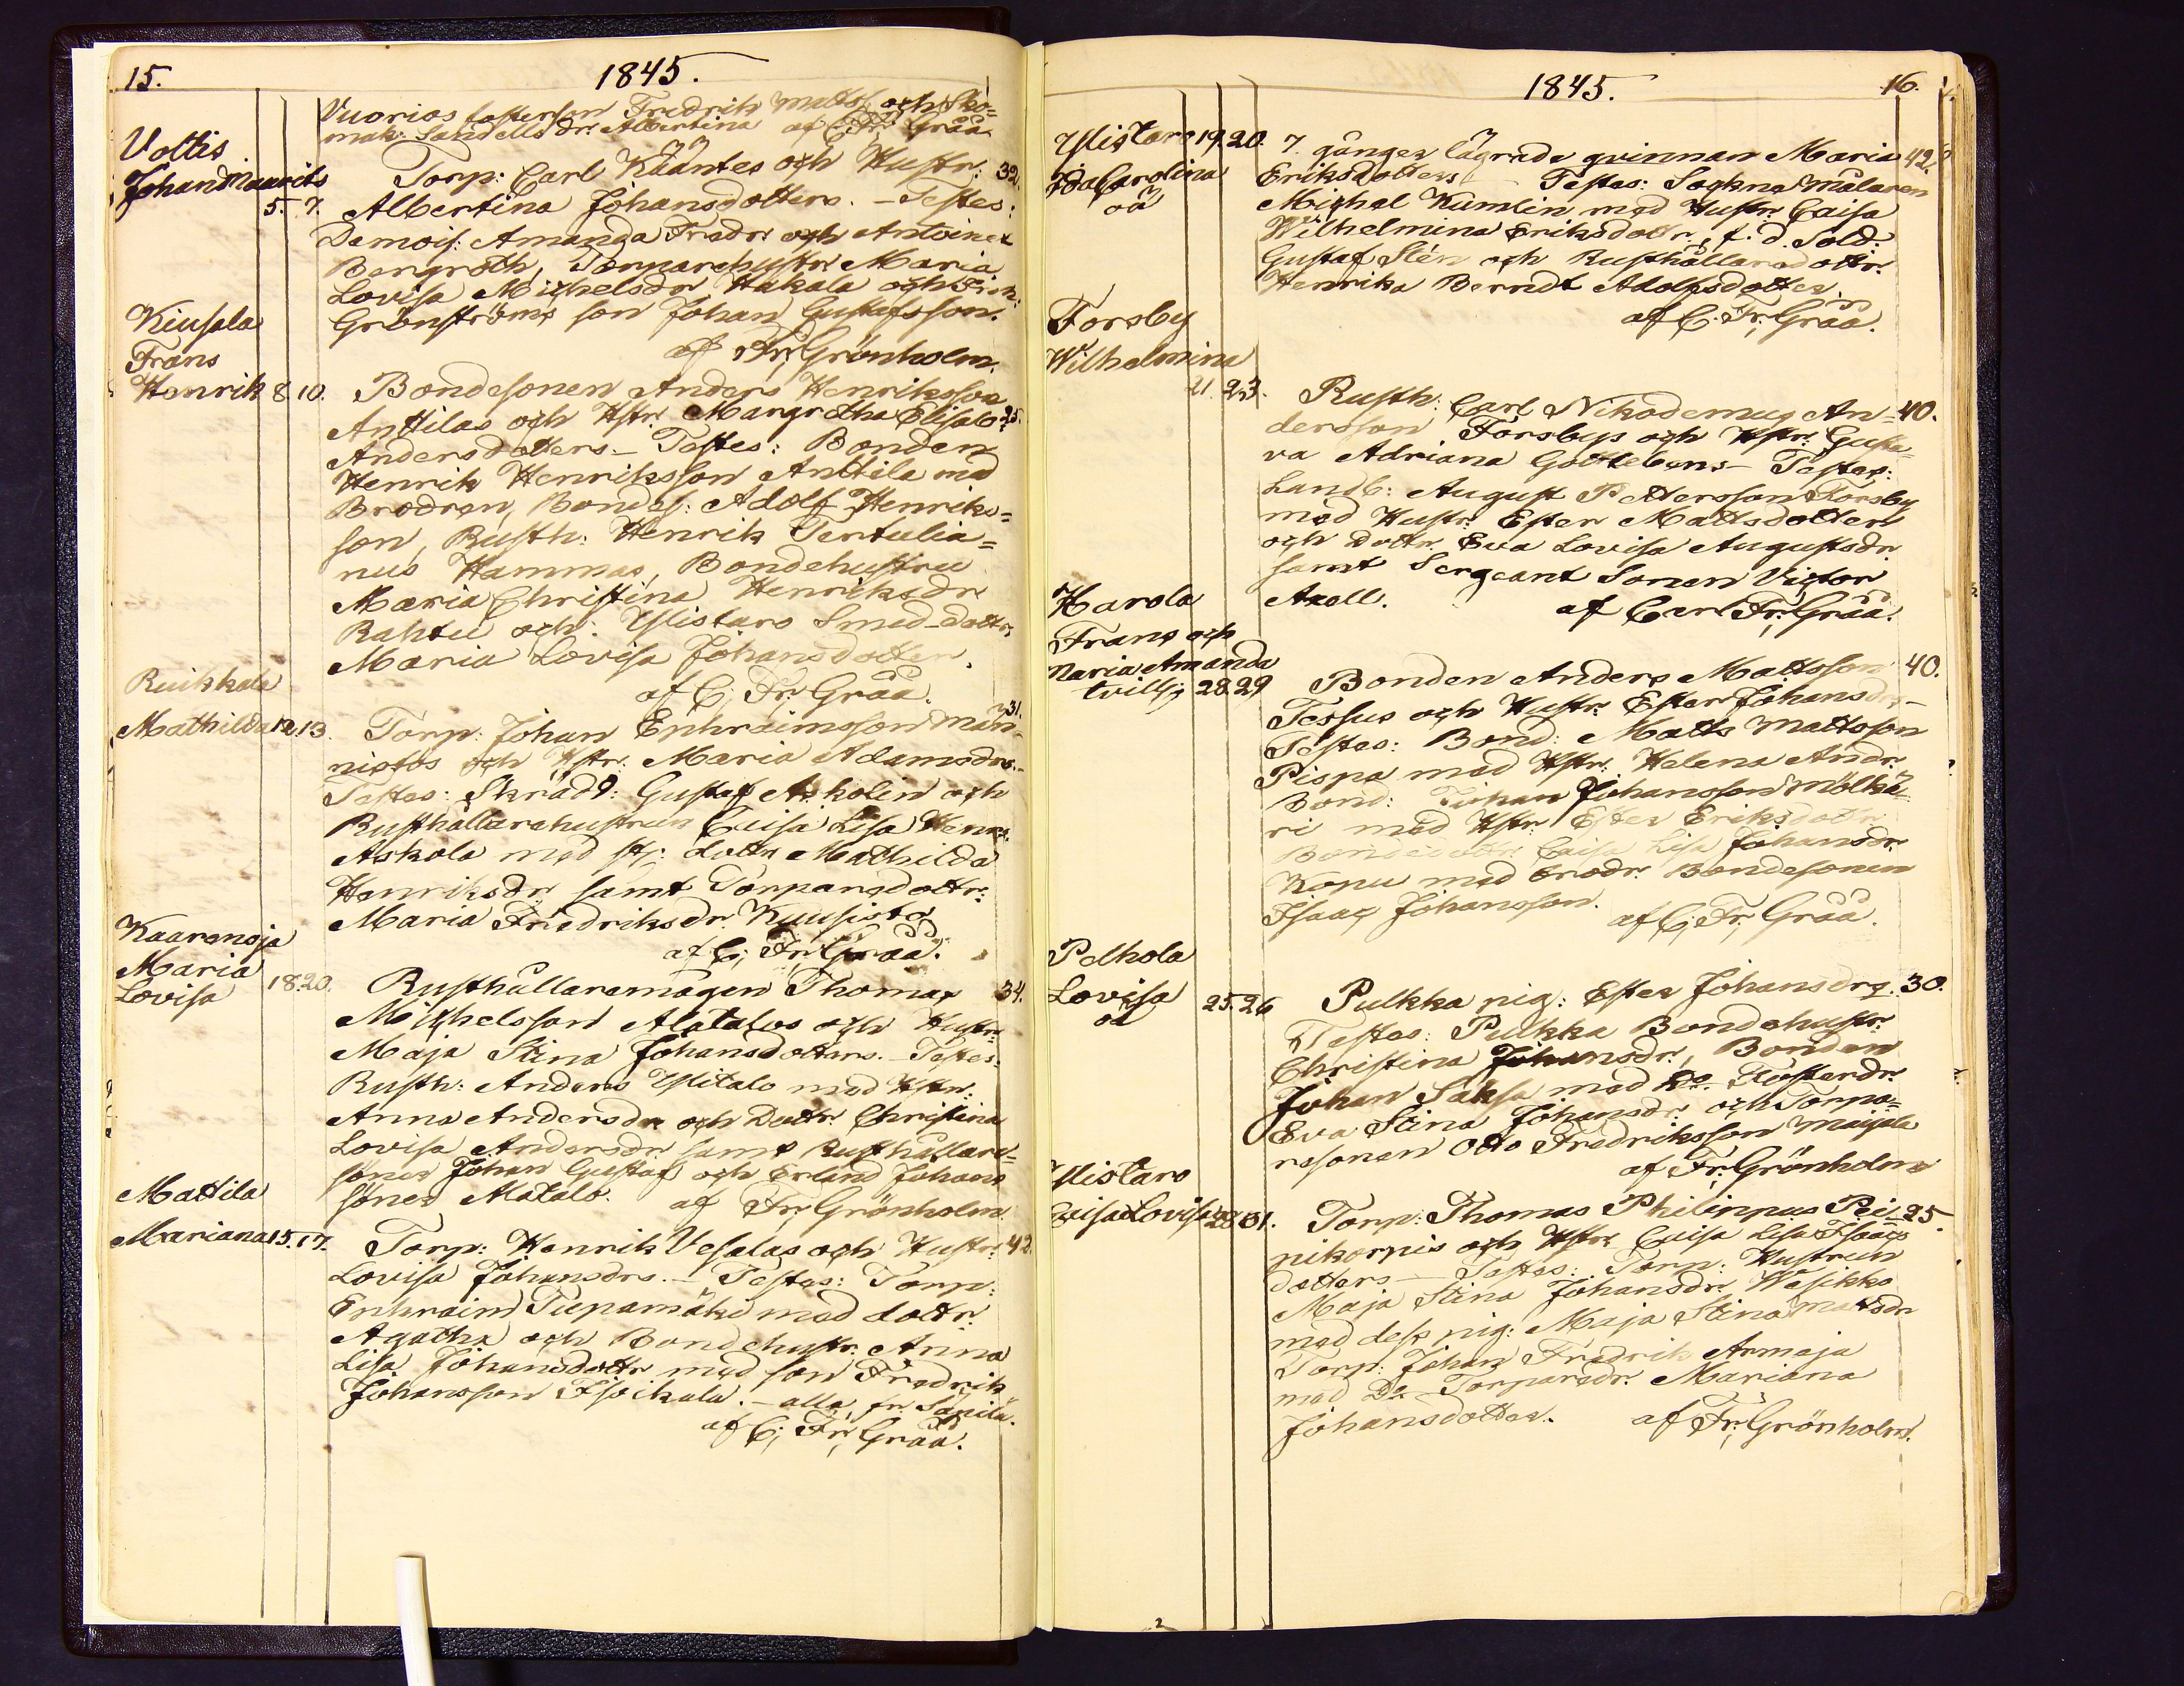 15.
1845.
Vuorios fosterson Fredrik Matts: och Sko=
mak: Sandells dr. Albertina af C. Fr. Gråå.
Voltis
Johan Maurits
5. 7.
Torp: Carl Kääntes och Hustr: 32.
Albertina Johansdotters. – Testes:
Demois: Amanda Fredr. och Antoinet
Bergroth, Torparehustr. Maria
Lovisa Michelsdr Hakala och
Grönströms son Johan Gustafsson.
af Fr. Grönholm.
Kiusala
Frans
Henrik 8. 10.
Bondesonen Anders Henriksson
Anttilas och Hstr. Margretha Elisab: 25.
Andersdotters – Testes: Bonden
Henrik Henriksson Anttila med
Brodren, Bondes: Adolf Henriks=
son, Rusth: Henrik Tertulia=
nus Hammas, Bondehustru
Maria Christina Henriksdr
Rahtu och Ylistaro Smed-dottr
Maria Lovisa Johansdotter.
af C. Fr. Gråå.
Ruikkala
Mathilda 12. 13.
Torp: Johan Ephraimsson Män= 31.
nistos och Hstr. Maria Adamsdrs. –
Testes: Skrädd: Gustaf Askolin och
Rusthållarehustrun Caisa Lisa Henr.
Askola med st: dottr Mathilda
Henriksdr samt Torparedottr:
Maria Fredriksdr. Kuusisto
af C. Fr. Gråå.
Kaaranoja
Maria
Lovisa 18. 20.
Rusthållaremågen Thomas 34.
Michelsson Alatalos och Hustr:
Maja Stina Johansdotters. – Testes:
Rusth: Anders Ylitalo med Hstr:
Anna Andersdr och Dottr. Christina
Lovisa Andersdr samt Rusthållare=
soner Johan Gustaf och Erland Johans
söner Matalo. af Fr. Grönholm.
Mattila
Mariana 15. 17.
Torp: Henrik Vesalas och Hustr: 42.
Lovisa Johansdrs. – Testes: Torp:
Ephraim Tupamäki med dottr.
Agatha och Bondehustr. Anna
Lisa Johansdottr med son Fredrik
Johansson Isoikala. – alla fr. Säpilä.
af C. Fr. Gråå.
1845.
16.
Ylistaro 19. 20.
Ida Carolina
oä
7. gånger lägrade qvinnan Maria 42.
Eriksdotters Testes: Sockne Målaren
Michel Kumlin med Hustr. Caisa
Wilhelmina Eriksdottr, f. d. Sold:
Gustaf Stén och Rusthållaredottr.
Henrika Berndt Adolfsdotter.
af C. Fr. Gråå.
Forsby
Wilhelmina
21. 23.
Rusth: Carl Nikodemus An= 40.
dersson Forsbys och Hstr. Gusta=
va Adriana Gottlebens – Testes:
Landb: August Pettersson Forsby
med Hustr. Ester Mattsdotter
och dottr. Eva Lovisa Augustsdr
samt Sergeant Sonen Victor
Axell. af Carl Fr. Gråå.
Harola
Frans och
Maria Amanda
tvill: 28. 29
Bonden Anders Mattsson 40.
Tessus och Hustr. Ester Johansdrs –
Testes: Bond: Matts Mattsson
Pispa med Hstr. Helena Andr.
Bond: Johan Johansson Mölkä=
ri med Hstr. Ester Eriksdottr
Bondedottr Caisa Lisa Johansdr.
Kopu med brodr. Bondesonen
Isaac Johansson. af C. Fr. Gråå.
Pelhola
Lovisa 25. 26
oä
Pulkka pig: Ester Johansdrs. 30.
Testes: Pulkka Bondehustr.
Christina Johansdr, Bonden
Johan Saksa med Do. Fosterdr.
Eva Stina Johansdr. och Torpa=
resonen Otto Fredriksson Maijala
af Fr. Grönholm
Ylistaro
Caisa Lovisa 28. 31.
Torp: Thomas Philippus Pei= 25.
pikorpis och Hstr. Caisa Lisa Isaacs
dotters – Testes: Torp: Hustrun
Maja Stina Johansdr. Wesikko
med dess pig: Maja Stina Mattsdr
Torp: Johan Fredrik Armaja
med Do Torparedr. Mariana
Johansdotter. af Fr. Grönholm.